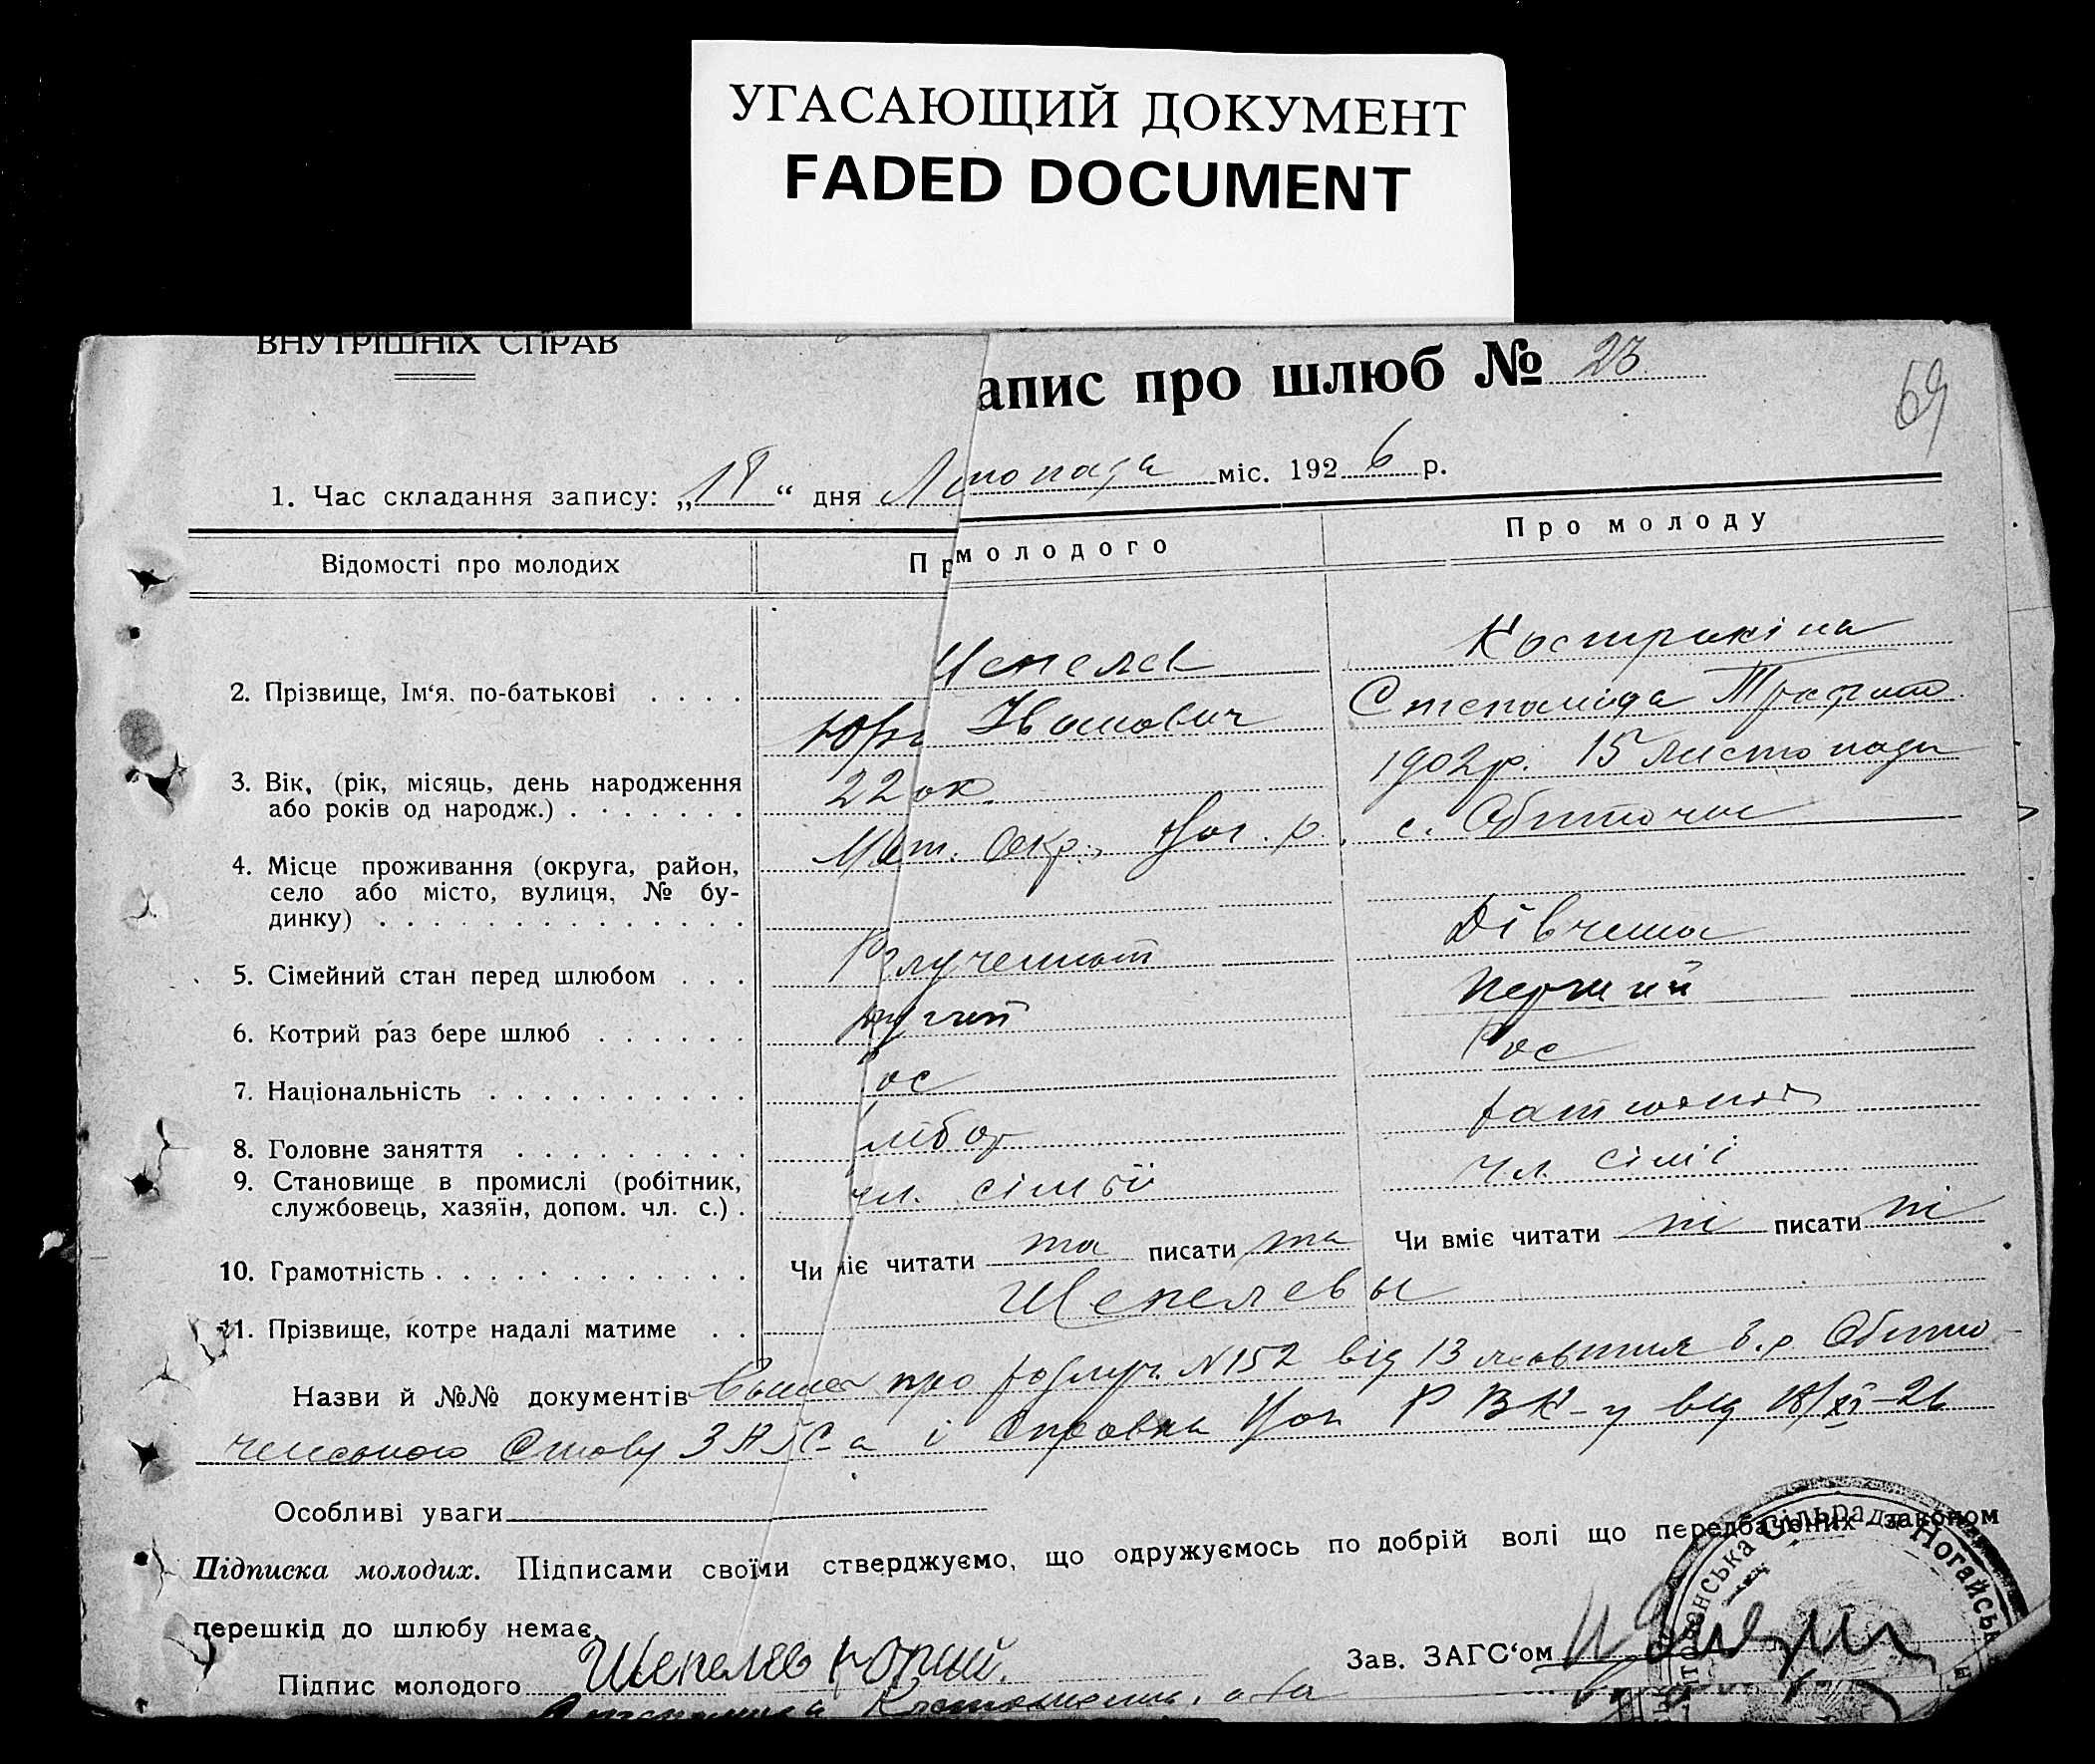 УГАСАЮЩИЙ ДОКУМЕНТ
FADED DOCUMENT
ВНУТРІШНІХ СПРАВ
апис про шлюб № 23
69
1. Час складання запису: „18“ дня Листопада міс. 1926 р.
Відомості про молодих
Пр молодого
Про молоду
2. Прізвище, Ім‘я. по-батькові . . . .
Шепелев
Юрі Іванович
Кострикіна
Степанида
3. Вік, (рік, місяць, день народження
або років од народж.) . . . . . . .
22 ок.
1902р. 15 листопада
4. Місце проживання (округа, район,
село або місто, вулиця, № бу-
динку) . . . . . . . . . . . . . .
Мет. Окр., Ног. р. с. Обиточне
5. Сімейний стан перед шлюбом . . .
Розлучений
Дівчина
6. Котрий раз бере шлюб . . . . . .
другий
перший
7. Національність . . . . . . . . . .
Рос
Рос
8. Головне заняття . . . . . . . . .
хлібор
9. Становище в промислі (робітник,
службовець, хазяїн, допом. чл. с.) .
чл. сімї
чл. сімї
10. Грамотність . . . . . . . . . . . .
Чи міє читати та писати та
Чи вміє читати ні писати ні
11. Прізвище, котре надалі матиме . .
Шепелевы
Назви й №№ документів про розлуч. N152 від 13 жовтня Обито-
ченського Столу ЗАГС-а і справка Ног РВК-у від 18/XI-26
Особливі уваги
Підписка молодих. Підписами своїми стверджуємо, що одружуємось по добрій волі що передбачених законом
перешкід до шлюбу немає.
Підпис молодого Шепелев Юрий.
Зав. ЗАГС‘ом
Сільрада Ногайськ